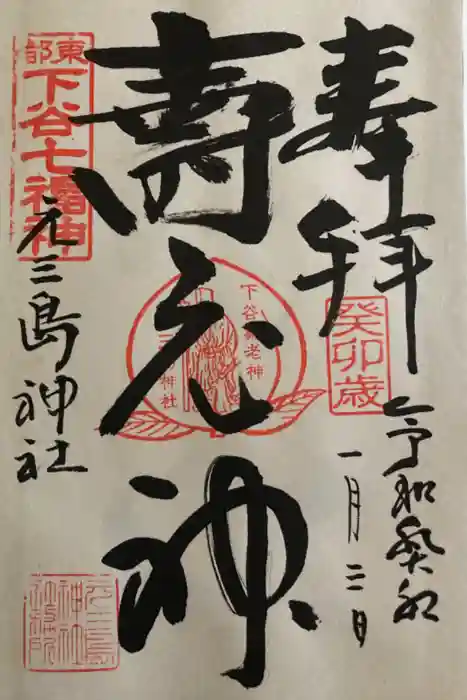 奉拝
令和癸卯
一月三日
癸卯歳
寿老神
下谷寿老神
三島神社
東都
下谷七福神
元三島神社
元三島
神社
社務所